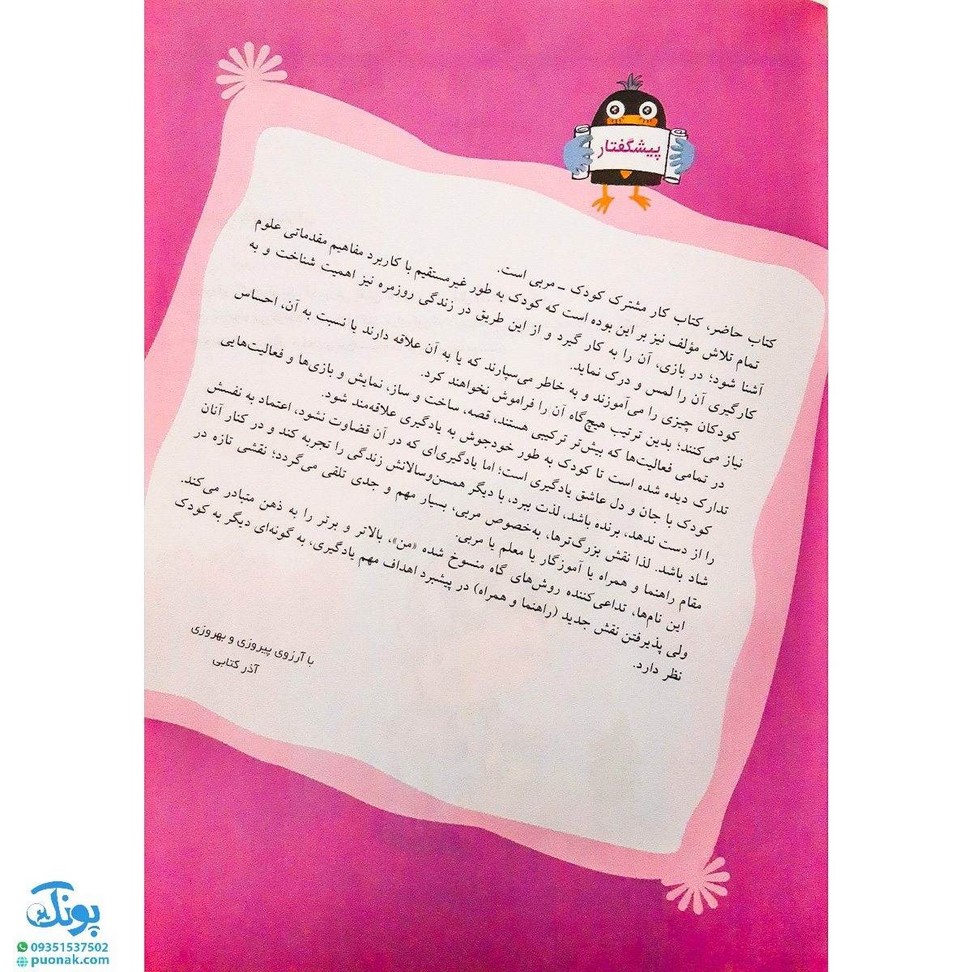 پیشگفتار
کتاب حاضر، کتاب کار مشترک کودک – مربی است.
تمام تلاش مؤلف نیز بر این بوده است که کودک به طور غیرمستقیم با کاربرد مفاهیم مقدماتی علوم
آشنا شود؛ در بازی، آن را به کار گیرد و از این طریق در زندگی روزمره نیز اهمیت شناخت و به
کارگیری آن را لمس و درک نماید.
کودکان چیزی را می‌آموزند و به خاطر می‌سپارند که یا به آن علاقه دارند یا نسبت به آن، احساس
نیاز می‌کنند؛ بدین ترتیب هیچ‌گاه آن را فراموش نخواهند کرد.
در تمامی فعالیت‌ها که بیش‌تر ترکیبی هستند، قصه، ساخت و ساز، نمایش و بازی‌ها و فعالیت‌هایی
تدارک دیده شده است تا کودک به طور خودجوش به یادگیری علاقه‌مند شود.
کودک با جان و دل عاشق یادگیری است؛ اما یادگیری‌ای که در آن قضاوت نشود، اعتماد به نفسش
را از دست ندهد، برنده باشد، لذت ببرد، با دیگر همسن‌وسالانش زندگی را تجربه کند و در کنار آنان
شاد باشد. لذا نقش بزرگ‌ترها، به‌خصوص مربی، بسیار مهم و جدی تلقی می‌گردد؛ نقشی تازه در
مقام راهنما و همراه یا آموزگار یا معلم یا مربی.
این نام‌ها، تداعی‌کننده روش‌های گاه منسوخ شده «من»، بالاتر و برتر را به ذهن متبادر می‌کند.
ولی پذیرفتن نقش جدید (راهنما و همراه) در پیشبرد اهداف مهم یادگیری، به گونه‌ای دیگر به کودک
نظر دارد.
با آرزوی پیروزی و بهروزی
آذر کتابی
پونک
09351537502
puonak.com